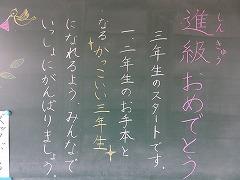 進級おめでとう
しんきゅう
三年生のスタートです。
一、二年生のお手本と
なるかっこいい三年生
になれるよう、みんなで
いっしょにがんばりましょう。